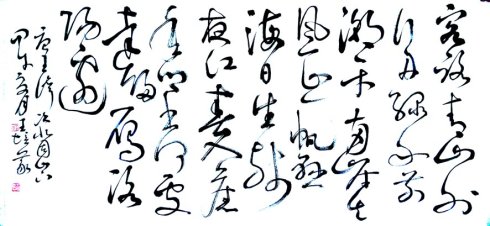 客路青山外
行舟绿水前
潮平两岸
风正一帆悬
海日生残
夜江春入旧
年乡书何处
达归雁洛
阳边
唐王湾次北固山下
甲午 月